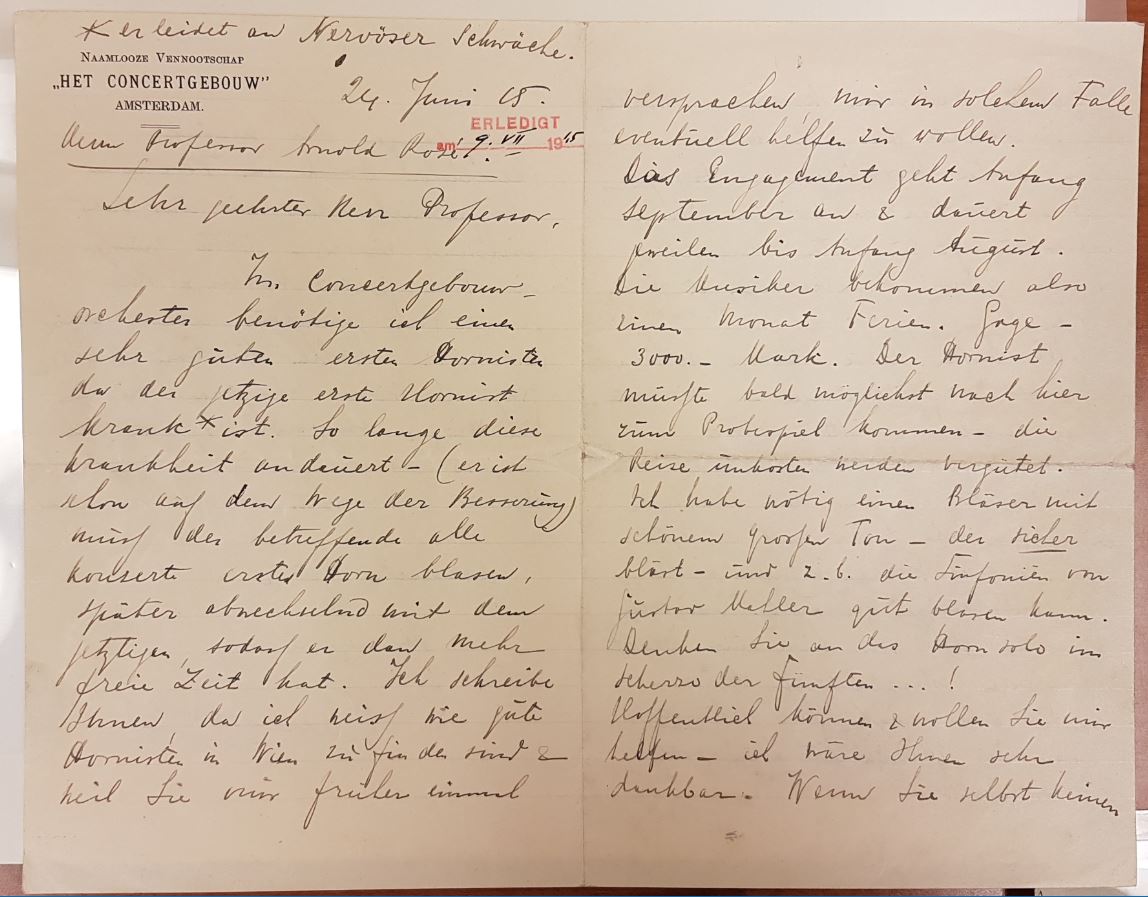 * er leidet an Nervöser Schwäche.
NAAMLOOZE VENNOOTSCHAP
„HET CONCERTGEBOUW”
AMSTERDAM.
24. Juni 15.
ERLEDIGT
am 9. VII 1915
Herrn Professor Arnold Rosé.
Sehr geehrter Herr Professor,
Im Concertgebouw-
orchester benötige ich einen
sehr guten ersten Hornisten
da der jetzige erste Hornist
krank * ist. So lange diese
Krankheit andauert – (er ist
schon auf dem Wege der Besserung)
muss der betreffende alle
Konzerte erstes Horn blasen,
später abwechselnd mit dem
jetztigen, sodass er dan mehr
freie Zeit hat. Ich schreibe
Ihnen, da ich weiss wie gute
Hornisten in Wien zu finden sind &
weil Sie mir früher einmal
versprachen mir in solchem Falle
eventuell helfen zu wollen.
Das Engagement geht Anfang
September an & dauert
zuweilen bis Anfang August.
Die Musiker bekommen also
einen Monat Ferien. Gage –
3000.– Mark. Der Hornist
müsste bald möglichst nach hier
zum Probespiel kommen – die
Reise unkosten werden vergütet.
Ich habe nötig einen Bläser mit
schönem grossen Ton – der sicher
bläst – und z. b. die Sinfonien von
Gustav Mahler gut blasen kann.
Denken Sie an das Hornsolo im
Scherzo der Fünften ... !
Hoffentlich können & wollen Sie mir
helfen – ich wäre Ihnen sehr
dankbar. Wenn Sie selbst keinen